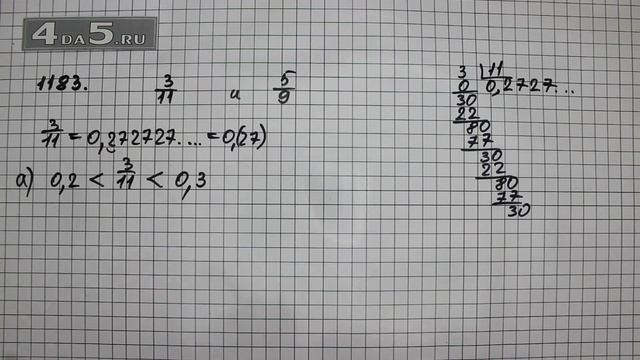 4DA5.RU
1183. 3/11 и 5/9
3/11 = 0,272727.... = 0,(27)
а) 0,2 < 3/11 < 0,3
3 | 11
0 0,2727...
30
22
80
77
30
22
80
77
30